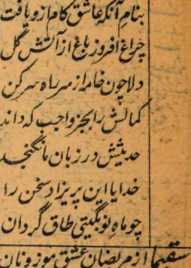 بنام آنکه عاشق کام ازو یافت
چراغ افروز باغ از آتش گل
دلا چون خامه از سر راه سر کن
کمالش را بجز واجب که داند
حدیثش در زبان ما نگنجد
خدایا این پریزاد سخن را
چو ماه نو بگیتی طاق گردان
از مریضان عشق موزونان